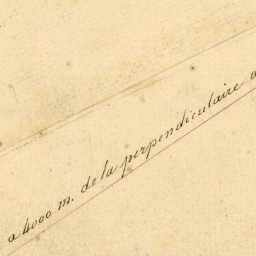 a 4000 m. de la perpendiculaire a